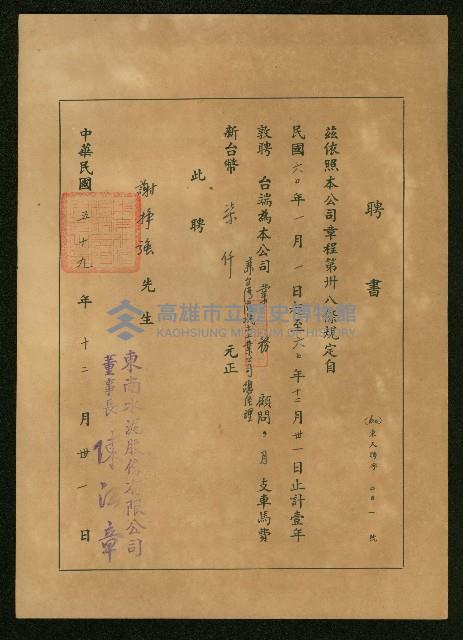 聘書
(60)東人聘字二〇一號
茲依照本公司章程第卅八條規定自
民國六〇年一月一日起至六〇年十二月卅一日止計壹年
敦聘 台端為本公司業務顧問,月支車馬費
新台幣柒仟元正
此聘
謝掙強先生
東南水泥股份有限公司
董事長陳江章
中華民國五十九年十二月卅一日
高雄市立歷史博物館
KAOHSIUNG MUSEUM OF HISTORY